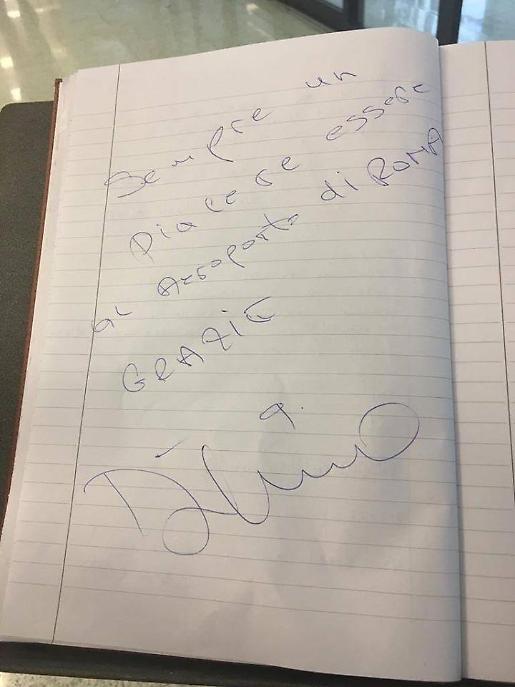 Sempre un
piacere essere
al Aeroporto di ROMA
GRAZIE